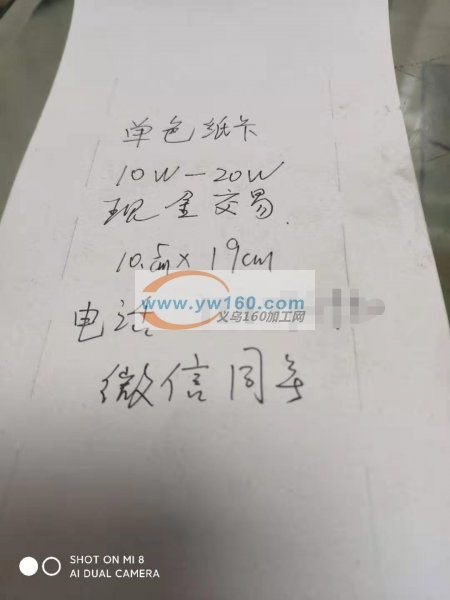 单色纸卡
10W-20W
现金交易.
10.5cm×19cm
www.yw160.com
义乌160加工网
电话
微信同号
SHOT ON MI 8
AI DUAL CAMERA